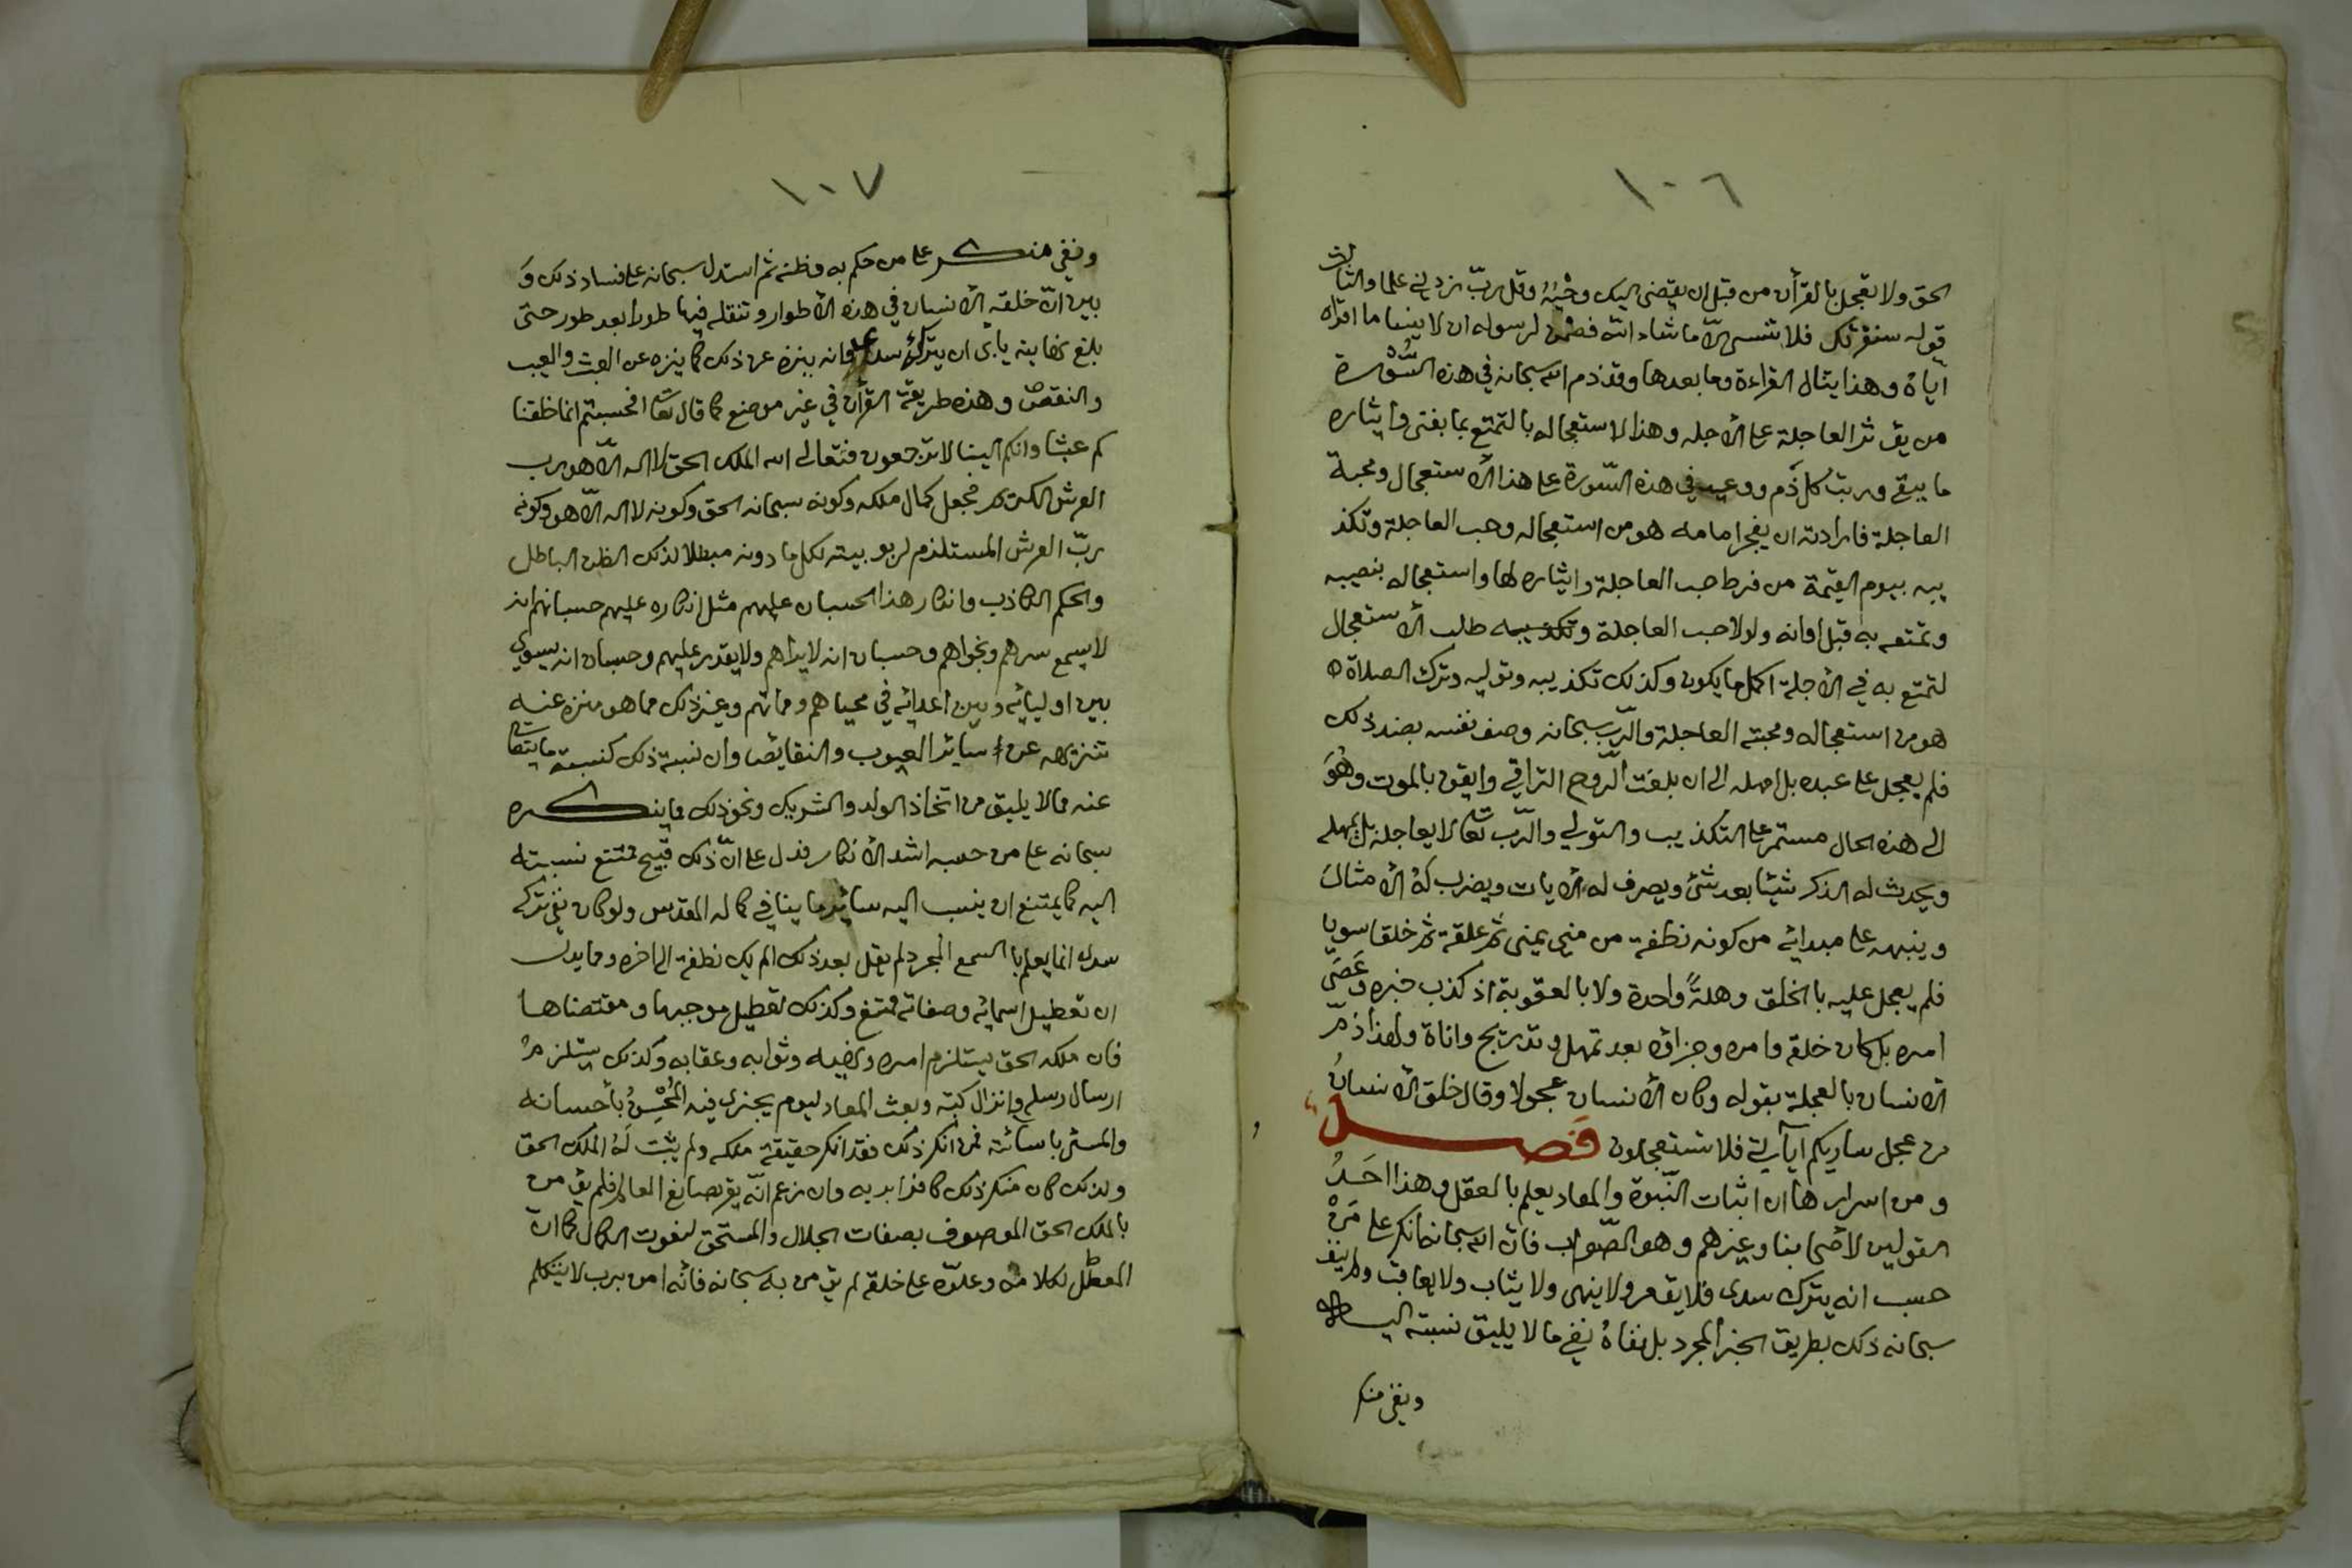 ١٠٦
الحق ولا تعجل بالقرأن من قبل ان يقضى اليك وحْيُهُ وقل ربّ زدني علما والثالث
قوله سنقرئك فلا تنسى الّا ما شاء اللّه فضمن لرسوله ان لا ينسا ما اقراه
ايّاهُ وهذا يتنال القراءة وما بعدها وقد ذم الله سبحانه في هذه السُّوْرة
من يؤثر العاجلة على الأجله وهذا لاستعجاله بالتمتع بما يفنى وايثاره
ما يبقى ورتب كل ذم ووعيد في هذه السّورة على هذا الأستعجال ومحبة
العاجلة فارادته ان يفجر امامه هو من استعجاله وحب العاجلة وتكذ
يبه بيوم القيمة من فرط حب العاجلة وايثاره لها واستعجاله بنصيبه
وتمتعه به قبل اوانه ولولا حب العاجلة وتكذيبه طلب الأستعجال
لتمتع به في الأجلة اكمل ما يكون وكذلك تكذيبه وتوليه وترك الصلاة
هو من استعجاله ومحبته العاجلة والرّب سبحانه وصف نفسه بضد ذلك
فلم يعجل على عبده بل امهله الى ان بلغت الرّوح التراقي وايقن بالموت وهُوَ
الى هذه الحال مستمر على التكذيب والتولي والرّب تعا لا يعاجله بل يمهله
ويحدث له الذكر شيئا بعد شئ ويصرف له الأيات ويضرب لهُ الأمثالَ
وينبهه على مبدائه من كونه نطفة من مني يمنى ثم علقة ثم خلقا سويا
فلم يعجل عليه بالخلق وهلةً واحدة ولا بالعقوبة اذ كذب خبره وعَصَى
امره بل كان خلقه وامره وجزاؤه بعد تمهل وتدريج واناة ولهذا ذمّ
الانسان بالعجلة بقوله وكان الأنسان عجولا وقال خلق الأنسانُ
من عجل ساريكم آياتي فلا تستعجلون فَصـــل
ومن اسرارها ان اثبات النّبوة والمعاد يعلم بالعقل وهذا احَدُ
القولين لأصحابنا وغيرهم وهو الصّواب فان الله سبحانه انكر على مَنْ
حسب انه يترك سدى فلا يؤمر ولا ينهى ولا يثاب ولا يعاقب ولم ينف
سبحانه ذلك بطريق الخبر المجرد بل نفاهُ نفي ما لا يليق نسبته اليه
ونفي منكر
١٠٧
ونفي منكر على من حكم به وظنه ثم استدل سبحانه على فساد ذلك وَ
بين انّ خلقه الأنسان في هذه الأطوار وتنقله فيها طورا بعد طور حتى
بلغ نهايته يأبى ان يتركهُ سدى وانه ينزه عن ذلك كما ينزه عن العبث والعيب
والنقص وهذه طريقة القرأن في غير موضع كما قال تعا افحسبتم انما خلقنا
كم عبثا وانكم الينا لا ترجعون فتعالى الله الملك الحق لا اله الّا هو رب
العرش الكريم فجعل كمال ملكه وكونه سبحانه الحق وكونه لا اله الّا هو وكونه
ربّ العرش المستلذم لربوبيته لكل ما دونه مبطلا لذلك الظن الباطل
والحكم الكاذب وانكار هذا الحسبان عليهم مثل انكاره عليهم حسبانهم انه
لا يسمع سرهم ونجواهم وحسبان انه لا يراهم ولا يقدر عليهم وحسبان انه يسوي
بين اوليائه وبين اعدائه في محياهم ومماتهم وغير ذلك مما هو منزه عنه
تنزيهه عن سائر العيوب والنقايص وان نسبة ذلك كنسبة ما يتعا
عنه مما لا يليق من اتخاذ الولد والشريك ونحو ذلك مما ينكره
سبحانه على من حسبه اشد الأنكار فدل على انّ ذلك قبيح ممتنع نسبته
اليه كما يمتنع ان ينسب اليه سائر ما ينافي كماله المقدس ولو كان نفي تركه
سدى انما يعلم بالسمع المجرد لم يقل بعد ذلك الم يك نطفة الى اخره ومما يدل
ان تعطيل اسمائه وصفاته ممتنع وكذلك تعطيل موجبها ومقتضاها
فان ملكه الحق يستلزم امره ونهيه وثوابه وعقابه وكذلك يستلزمُ
ارسال رسله وانزال كتبه وبعث المعاد ليوم يجزى فيه المُحْسِنُ بأحسانه
والمسئ باسائته فمن انكر ذلك فقد انكر حقيقة ملكه ولم يثبت لهُ الملك الحق
ولذلك كان منكر ذلك كافرا بربه وان زعم انّه يقر بصانع العالم فلم يؤمن
بالملك الحق الموصوف بصفات الجلال والمستحق لنعوت الكمال كما انّ
المعطّل لكلامه وعلوّه على خلقه لم يؤمن به سبحانه فأنّه امن برب لا يتكلم